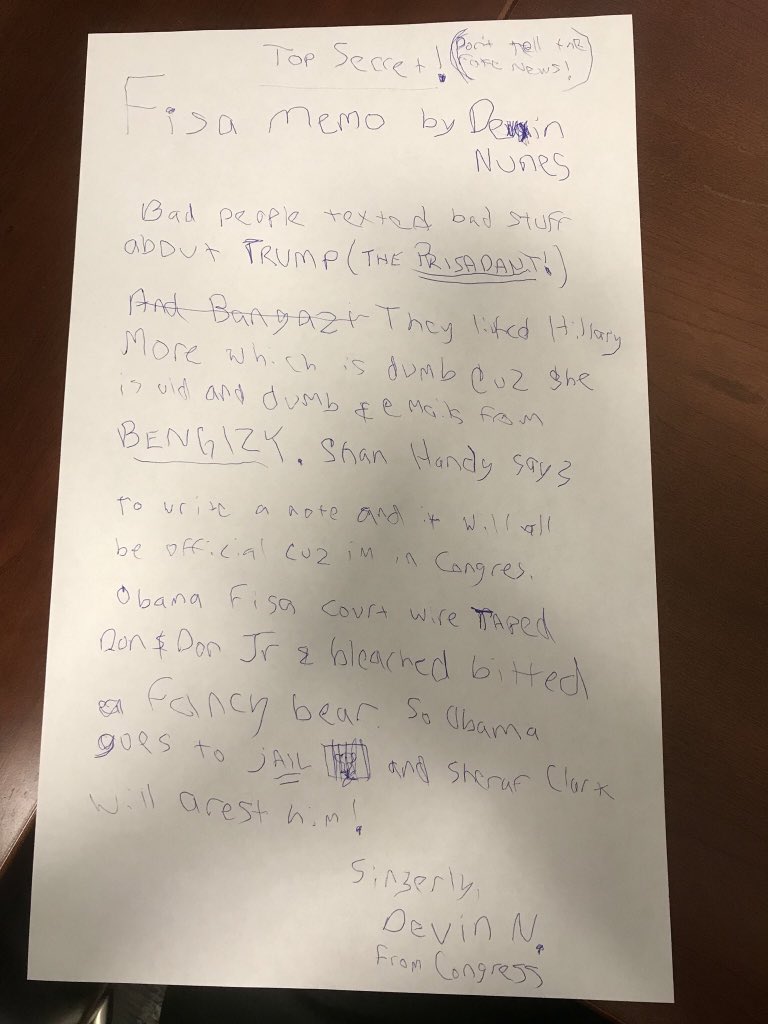 Top Secret! (Don't tell the
Fake News!)
Fisa Memo by Devin
Nunes
Bad people texted bad stuff
about TRUMP (THE PRISADANT!)
And Bangazi They liked Hillary
More which is dumb cuz she
is old and dumb & emails from
BENGIZY. Shan Handy says
to write a note and it will all
be official cuz im in Congres.
Obama Fisa court wire TAPED
Don & Don Jr & bleached bitted
Fancy bear. So Obama
goes to jAIL and sheraf Clark
will arest him!
Sinzerly,
Devin N.
From Congress